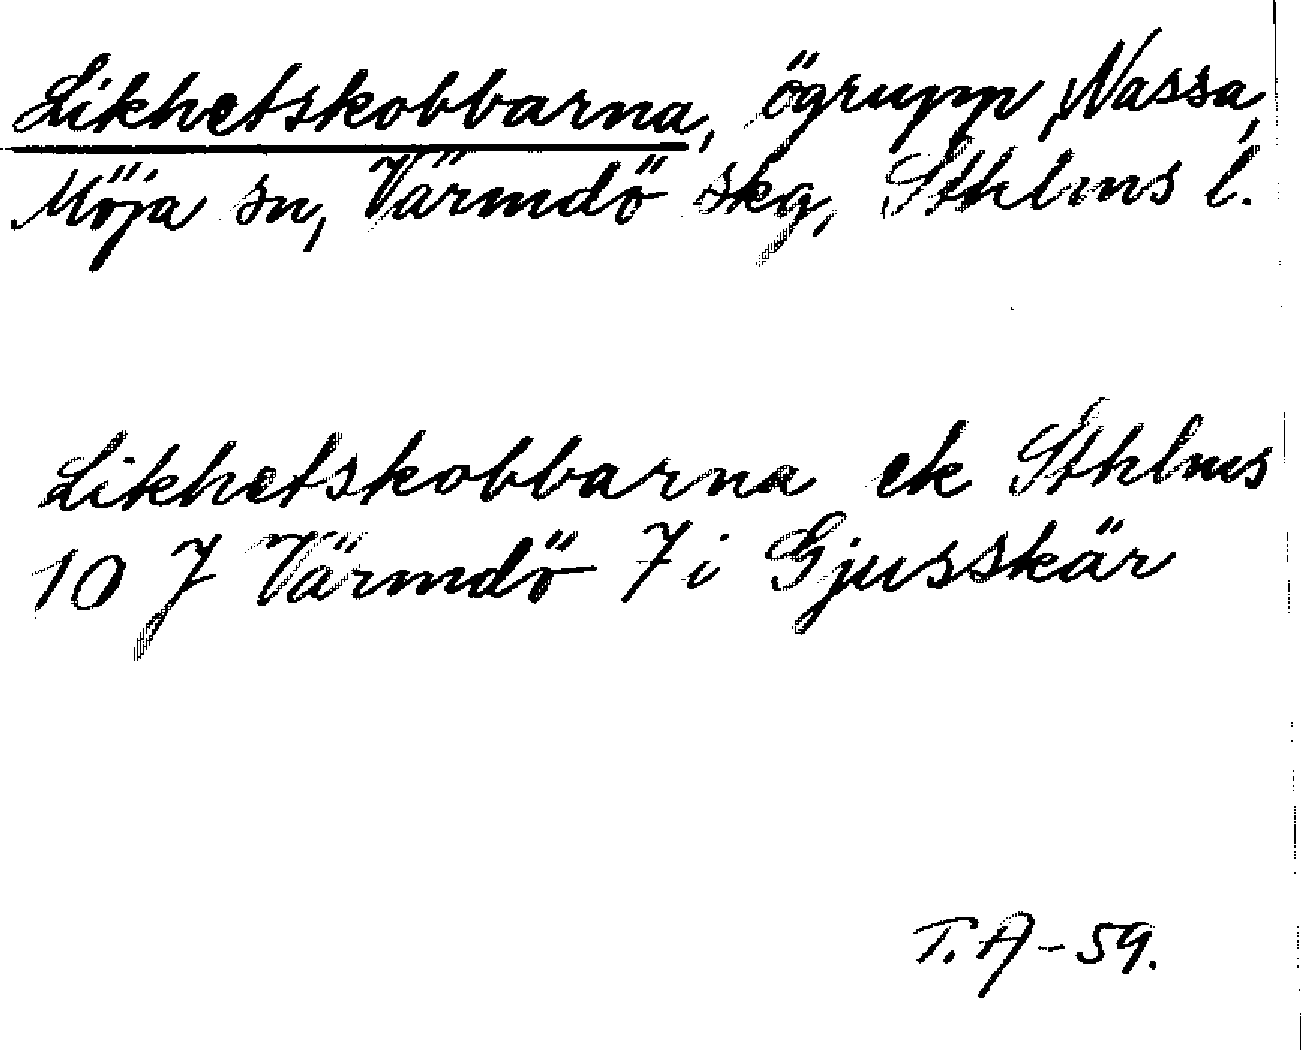 Likhetskobbarna, ögrupp, Nassa,
Möja sn, Värmdö skg, Sthlms l.
Likhetskobbarna ek Sthlms
10 J Värmdö 7 i Gjusskär
T.A-59.